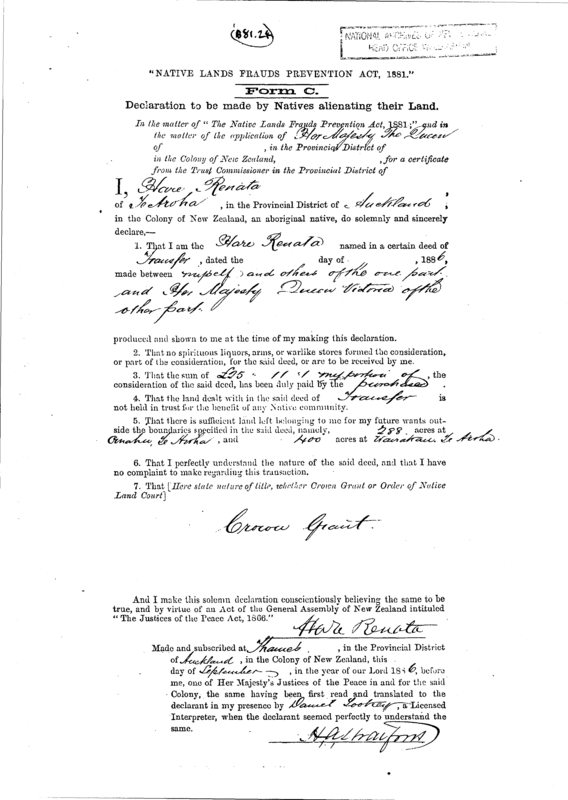 881.24
NATIONAL ARCHIVES OF NEW ZEALAND
HEAD OFFICE WELLINGTON
"NATIVE LANDS FRAUDS PREVENTION ACT, 1881."
Form C.
Declaration to be made by Natives alienating their Land.
In the matter of "The Native Lands Frauds Prevention Act, 1881;" and in
the matter of the application of Her Majesty The Queen
of , in the Provincial District of
in the Colony of New Zealand, , for a certificate
from the Trust Commissioner in the Provincial District of
I, Hare Renata ,
of Te Aroha , in the Provincial District of Auckland ,
in the Colony of New Zealand, an aboriginal native, do solemnly and sincerely
declare,—
1. That I am the Hare Renata named in a certain deed of
Transfer , dated the day of , 1886,
made between myself and others of the one part
and Her Majesty Queen Victoria of the
other part.
produced and shown to me at the time of my making this declaration.
2. That no spirituous liquors, arms, or warlike stores formed the consideration,
or part of the consideration, for the said deed, or are to be received by me.
3. That the sum of £25 - 11 - 1 my portion of , the
consideration of the said deed, has been duly paid by the purchased .
4. That the land dealt with in the said deed of Transfer is
not held in trust for the benefit of any Native community.
5. That there is sufficient land left belonging to me for your future wants out-
side the boundaries specified in the said deed, namely, 288 acres at
Omahu, Te Aroha, and 400 acres at Wairakau, Te Aroha.
6. That I perfectly understand the nature of the said deed, and that I have
no complaint to make regarding this transaction.
7. That [Here state nature of title, whether Crown Grant or Order of Native
Land Court]
Crown Grant.
And I make this solemn declaration conscientiously believing the same to be
true, and by virtue of an Act of the General Assembly of New Zealand intituled
"The Justices of the Peace Act, 1866."
Hare Renata
Made and subscribed at Thames , in the Provincial District
of Auckland , in the Colony of New Zealand, this
day of September , in the year of our Lord 1886, before
me, one of Her Majesty's Justices of the Peace in and for the said
Colony, the same having been first read and translated to the
declarant in my presence by Daniel , a Licensed
Interpreter, when the declarant seemed perfectly to understand the
same.